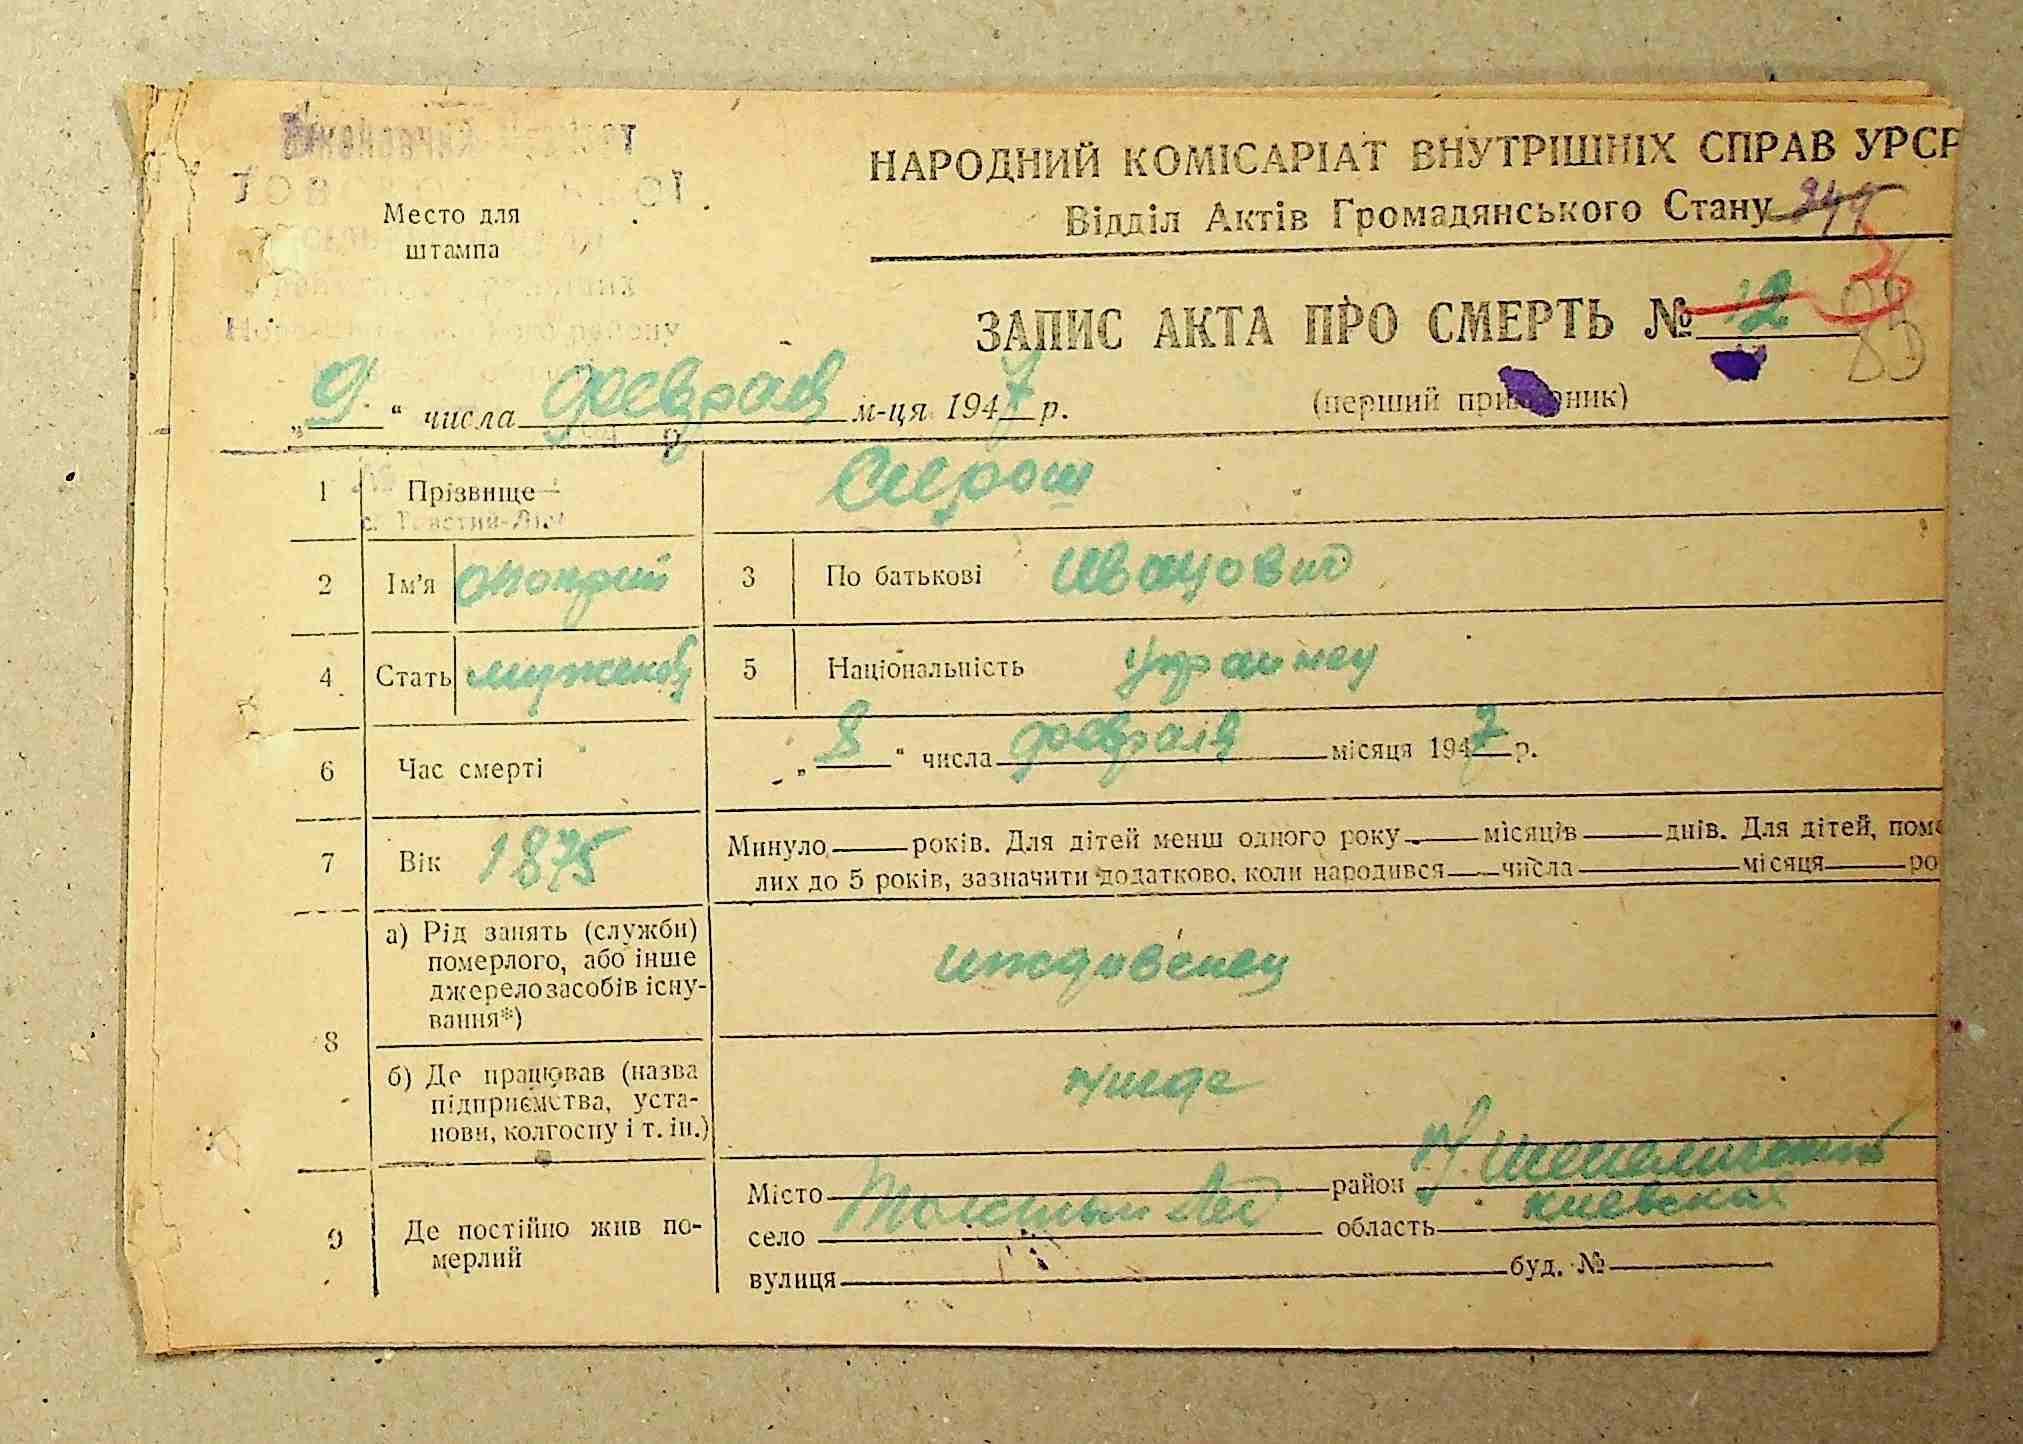 НАРОДНИЙ КОМІСАРІАТ ВНУТРІШНІХ СПРАВ УРСР
Відділ Актів Громадянського Стану
Место для
штампа
ЗАПИС АКТА ПРО СМЕРТЬ № 12 85
„9“ числа февраля м-ця 1947 р. (перший примірник)
1 Прізвище Сирош
2 Ім’я Оноприй 3 По батькові Иванович
4 Стать мужской 5 Національність украинец
6 Час смерті „8“ числа февраля місяця 1947 р.
7 Вік 1875 Минуло років. Для дітей менш одного року місяців днів. Для дітей, поме
лих до 5 років, зазначити додатково, коли народився числа місяця ро
8 а) Рід занять (служби)
померлого, або інше
джерело засобів існу-
вання*) иждивенец
б) Де працював (назва
підприємства, уста-
нови, колгоспу і т. ін.) нигде
9 Де постійно жив по-
мерлий
Місто район Н/Шепеличский
село Толстый Лес область киевская
вулиця буд. №